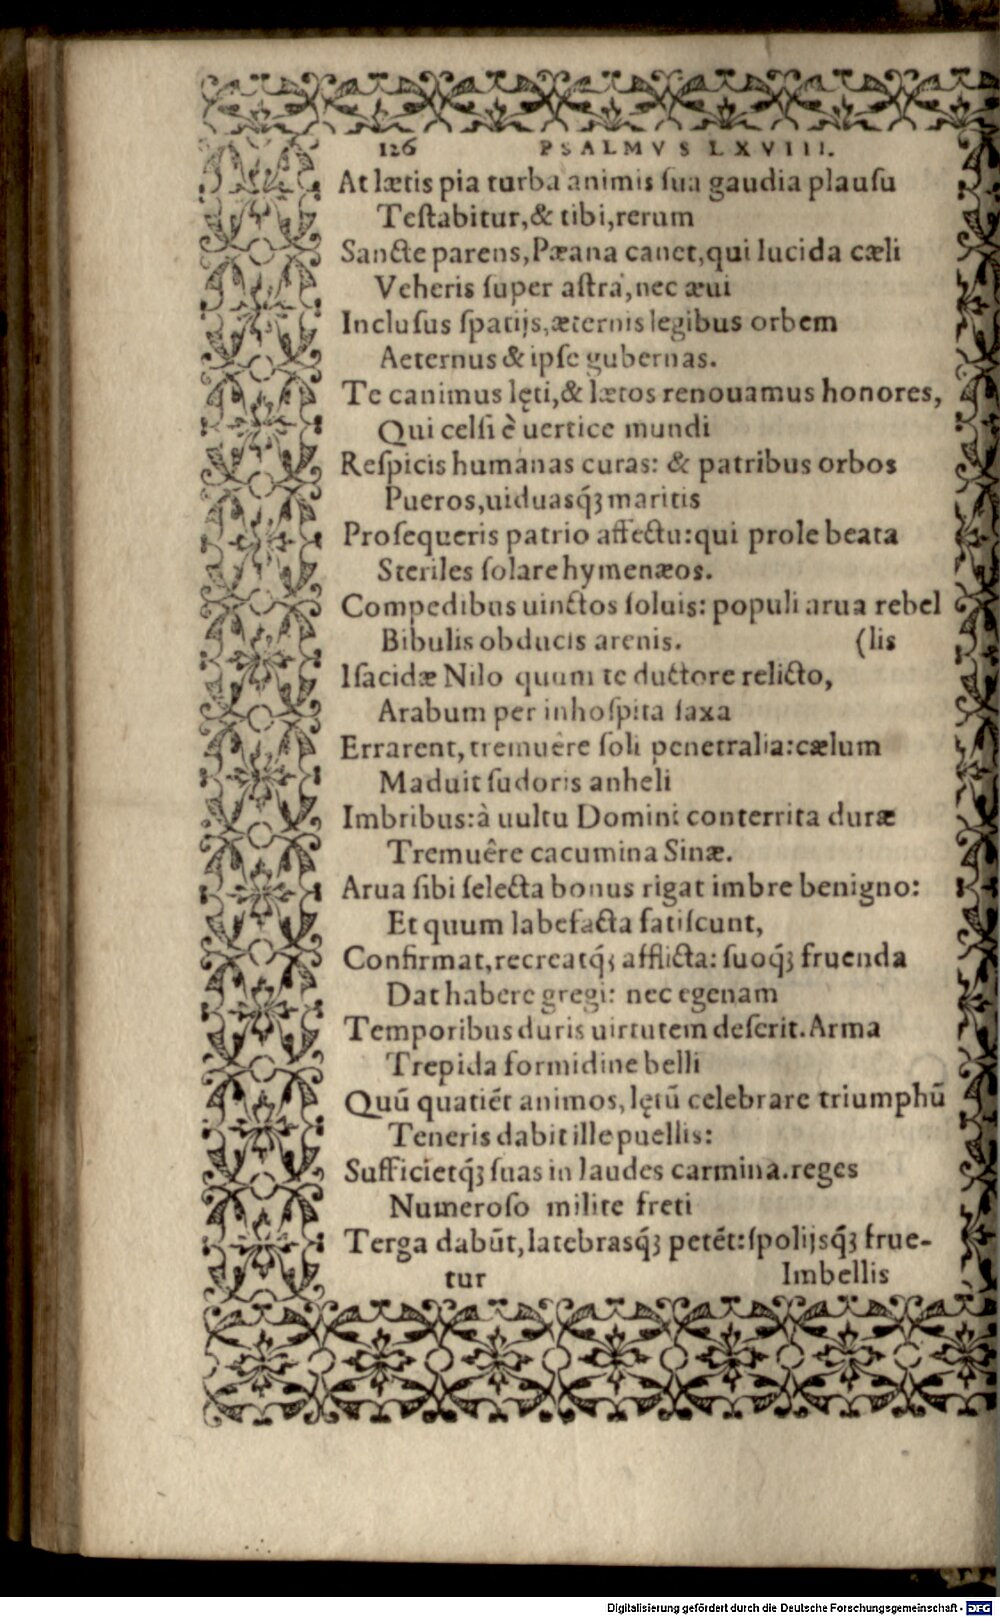 126 PSALMVS LXVIII.
At lætis pia turba animis ſua gaudia plauſu
Teſtabitur,& tibi,rerum
Sancte parens,Pæana canet,qui lucida cæli
Veheris ſuper aſtra,nec æui
Incluſus ſpatijs,æternis legibus orbem
Aeternus & ipſe gubernas.
Te canimus lęti,& lætos renouamus honores,
Qui celſi è uertice mundi
Reſpicis humanas curas: & patribus orbos
Pueros,uiduasq́ꝫ maritis
Proſequeris patrio affectu:qui prole beata
Steriles ſolare hymenæos.
Compedibus uinctos ſoluis: populi arua rebel
Bibulis obducis arenis. (lis
Iſacidæ Nilo quum te ductore relicto,
Arabum per inhoſpita ſaxa
Errarent, tremuêre ſoli penetralia:cælum
Maduit ſudoris anheli
Imbribus:à uultu Domini conterrita duræ
Tremuêre cacumina Sinæ.
Arua ſibi ſelecta bonus rigat imbre benigno:
Et quum labefacta fatiſcunt,
Confirmat,recreatq́ꝫ afflicta: ſuoq́ꝫ fruenda
Dat habere gregi: nec egenam
Temporibus duris uirtutem deſerit.Arma
Trepida formidine belli
Quū quatiét animos, lętū celebrare triumphū
Teneris dabit ille puellis:
Sufficietq́ꝫ ſuas in laudes carmina.reges
Numeroſo milite freti
Terga dabūt,latebrasq́ꝫ petét:ſpolijsq́ꝫ frue-
tur Imbellis
Digitalisierung gefördert durch die Deutsche Forschungsgemeinschaft - DFG